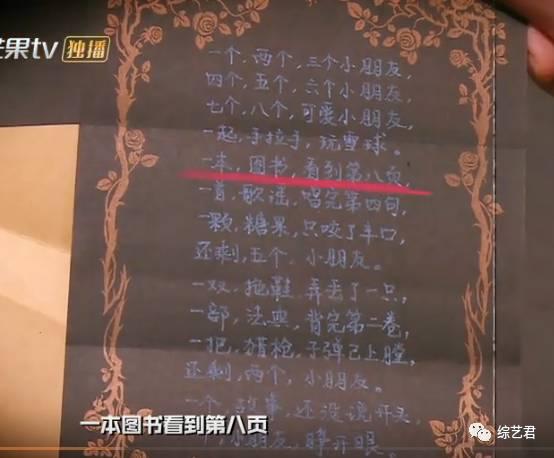 芒果tv 独播
一个,两个,三个小朋友,
四个,五个,六个小朋友,
七个,八个,可爱小朋友,
一起,手拉手,玩雪球。
一本,图书,看到第八页,
一首,歌谣,唱完第四句,
一颗,糖果,只咬了半口,
还剩,五个,小朋友。
一双,拖鞋,弄丢了一只,
一部,法典,背完第二卷,
一把,猎枪,子弹已上膛,
还剩,两个,小朋友。
一个,故事,还没说开头,
小朋友,睁开眼。
一本图书看到第八页
综艺君